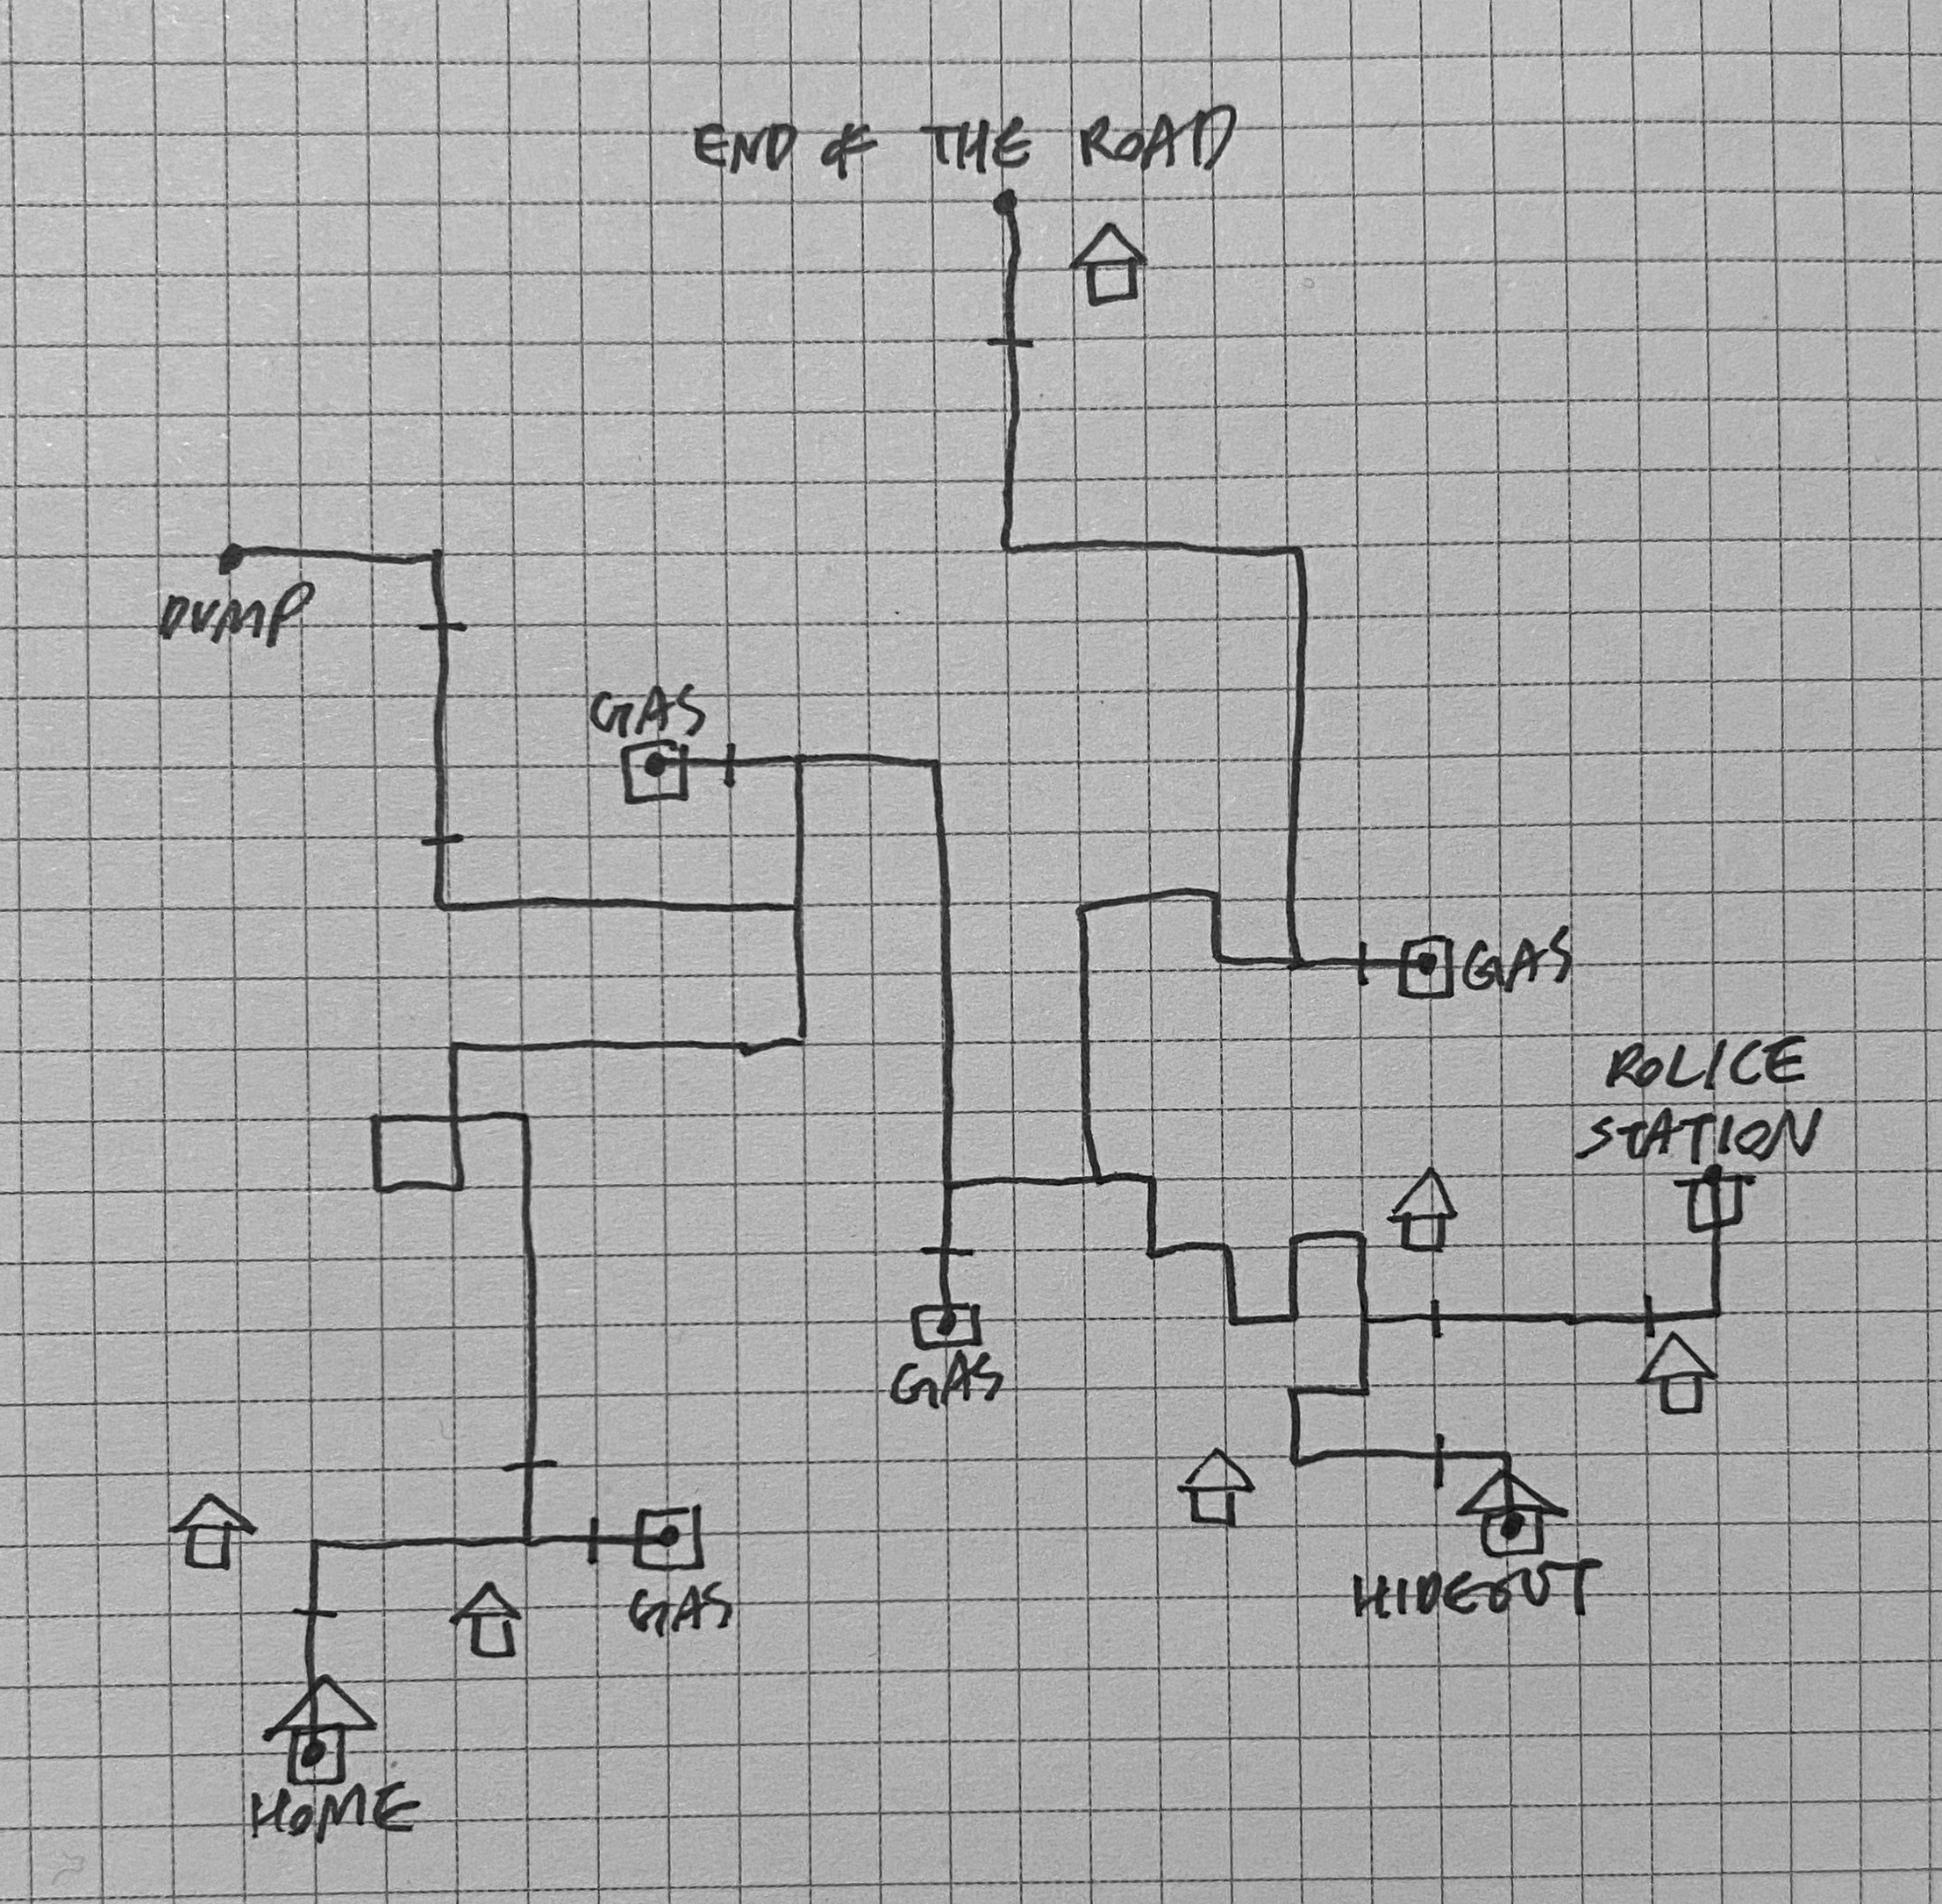 END of THE ROAD
DUMP
GAS
GAS
POLICE
STATION
GAS
HIDEOUT
GAS
HOME